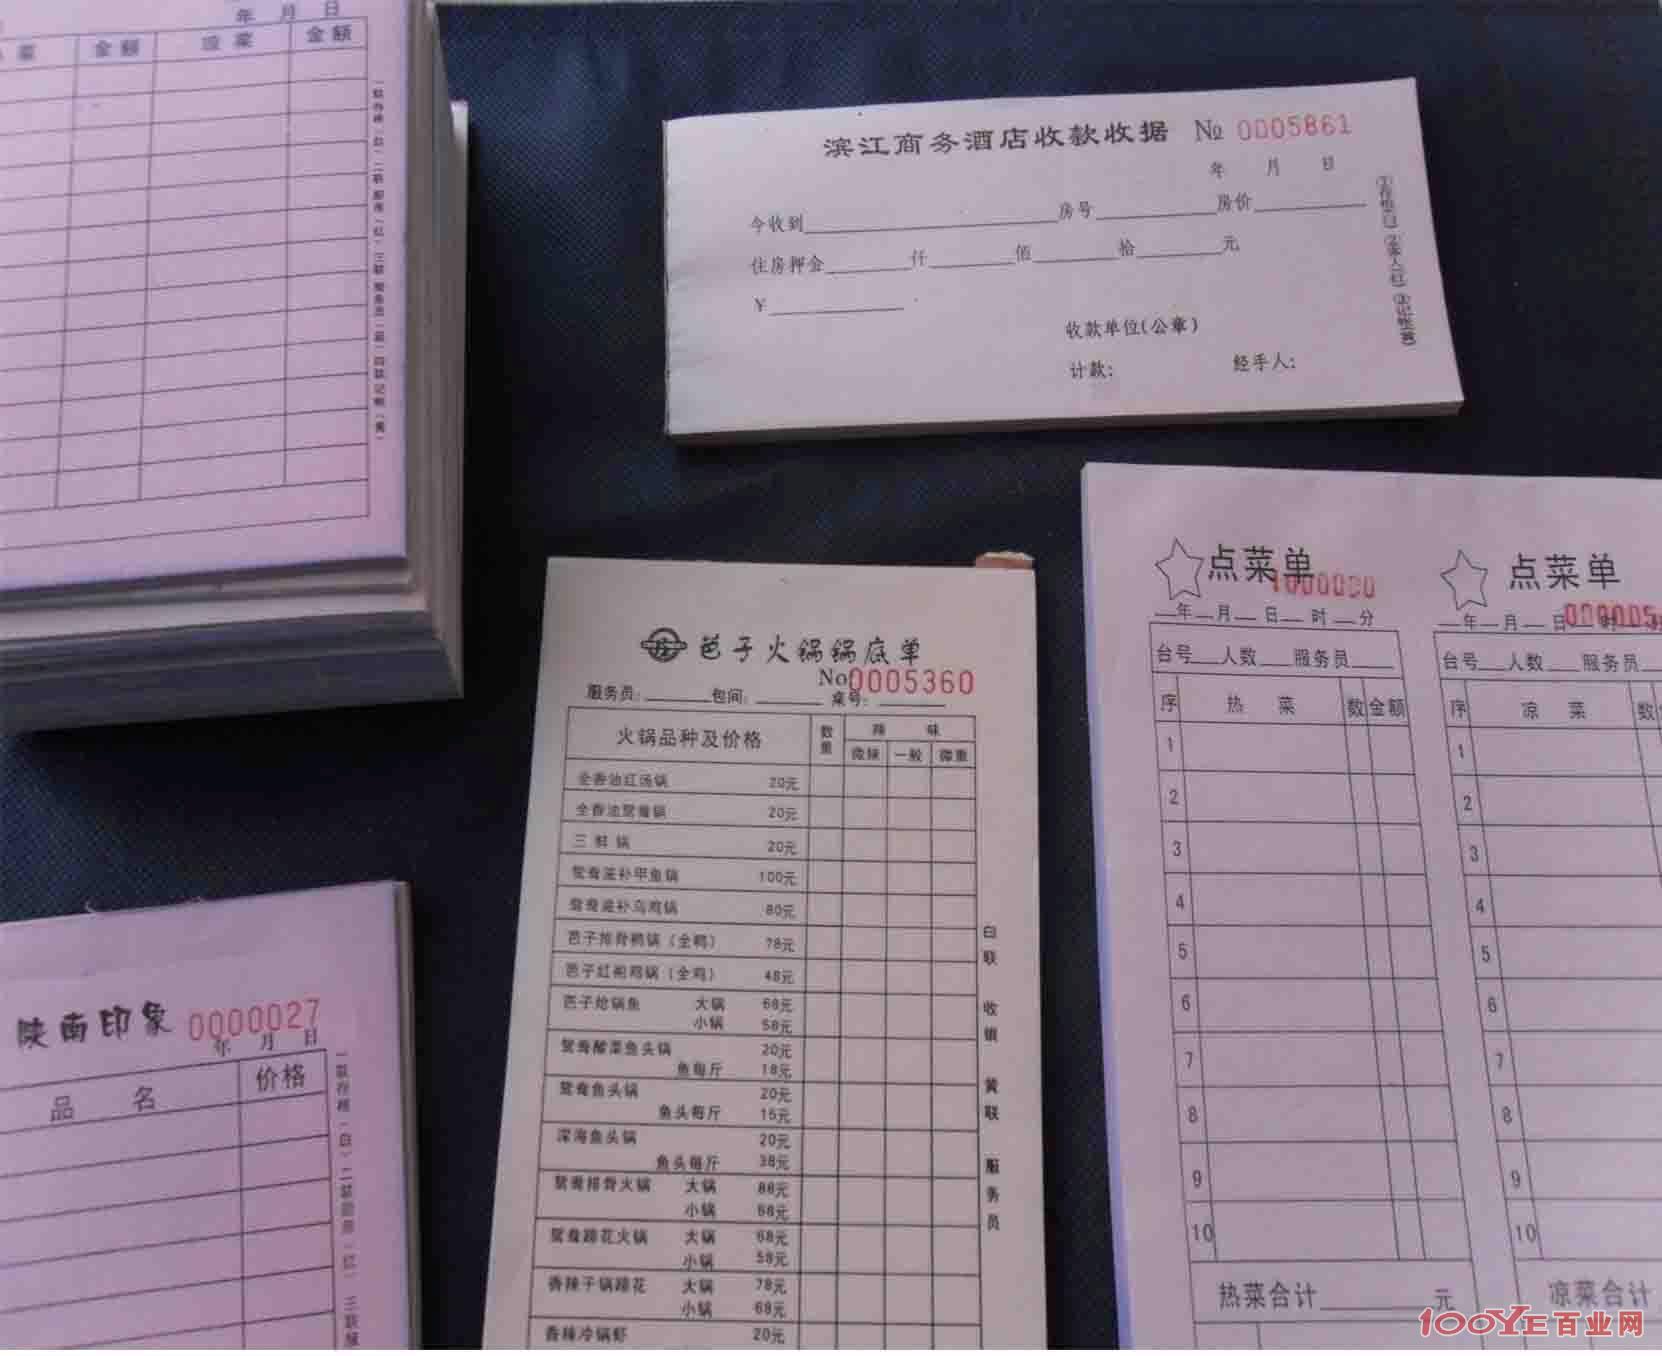 年 月 日
菜 金额 凉菜 金额
滨江商务酒店收款收据 № 0005861
年 月 日
今收到 房号 房价
住房押金 仟 佰 拾 元
￥
收款单位(公章)
计款: 经手人:
芭子火锅锅底单
No 0005360
服务员: 包间: 桌号:
火锅品种及价格 数量 辣味
微辣 一般 微重
全香油红汤锅 20元
全香油鸳鸯锅 20元
三鲜锅 20元
鸳鸯滋补甲鱼锅 100元
鸳鸯滋补乌鸡锅 80元
芭子排骨鸭锅(全鸭) 78元
芭子红袍鸡锅(全鸡) 48元
芭子炝锅鱼 大锅 68元
小锅 58元
鸳鸯酸菜鱼头锅 20元
鱼每斤 18元
鸳鸯鱼头锅 20元
鱼头每斤 15元
深海鱼头锅 20元
鱼头每斤 38元
鸳鸯排骨火锅 大锅 88元
小锅 68元
鸳鸯蹄花火锅 大锅 68元
小锅 58元
香辣子锅蹄花 大锅 78元
小锅 68元
香辣冷锅虾 20元
白联 收银 黄联 服务员
点菜单
1000000
年 月 日 时 分
台号 人数 服务员
序 热菜 数 金额
1
2
3
4
5
6
7
8
9
10
热菜合计 元
点菜单
000005
年 月 日 时
台号 人数 服务员
序 凉菜 数
1
2
3
4
5
6
7
8
9
10
凉菜合计
陕南印象 0000027
年 月 日
品名 价格
100YE百业网